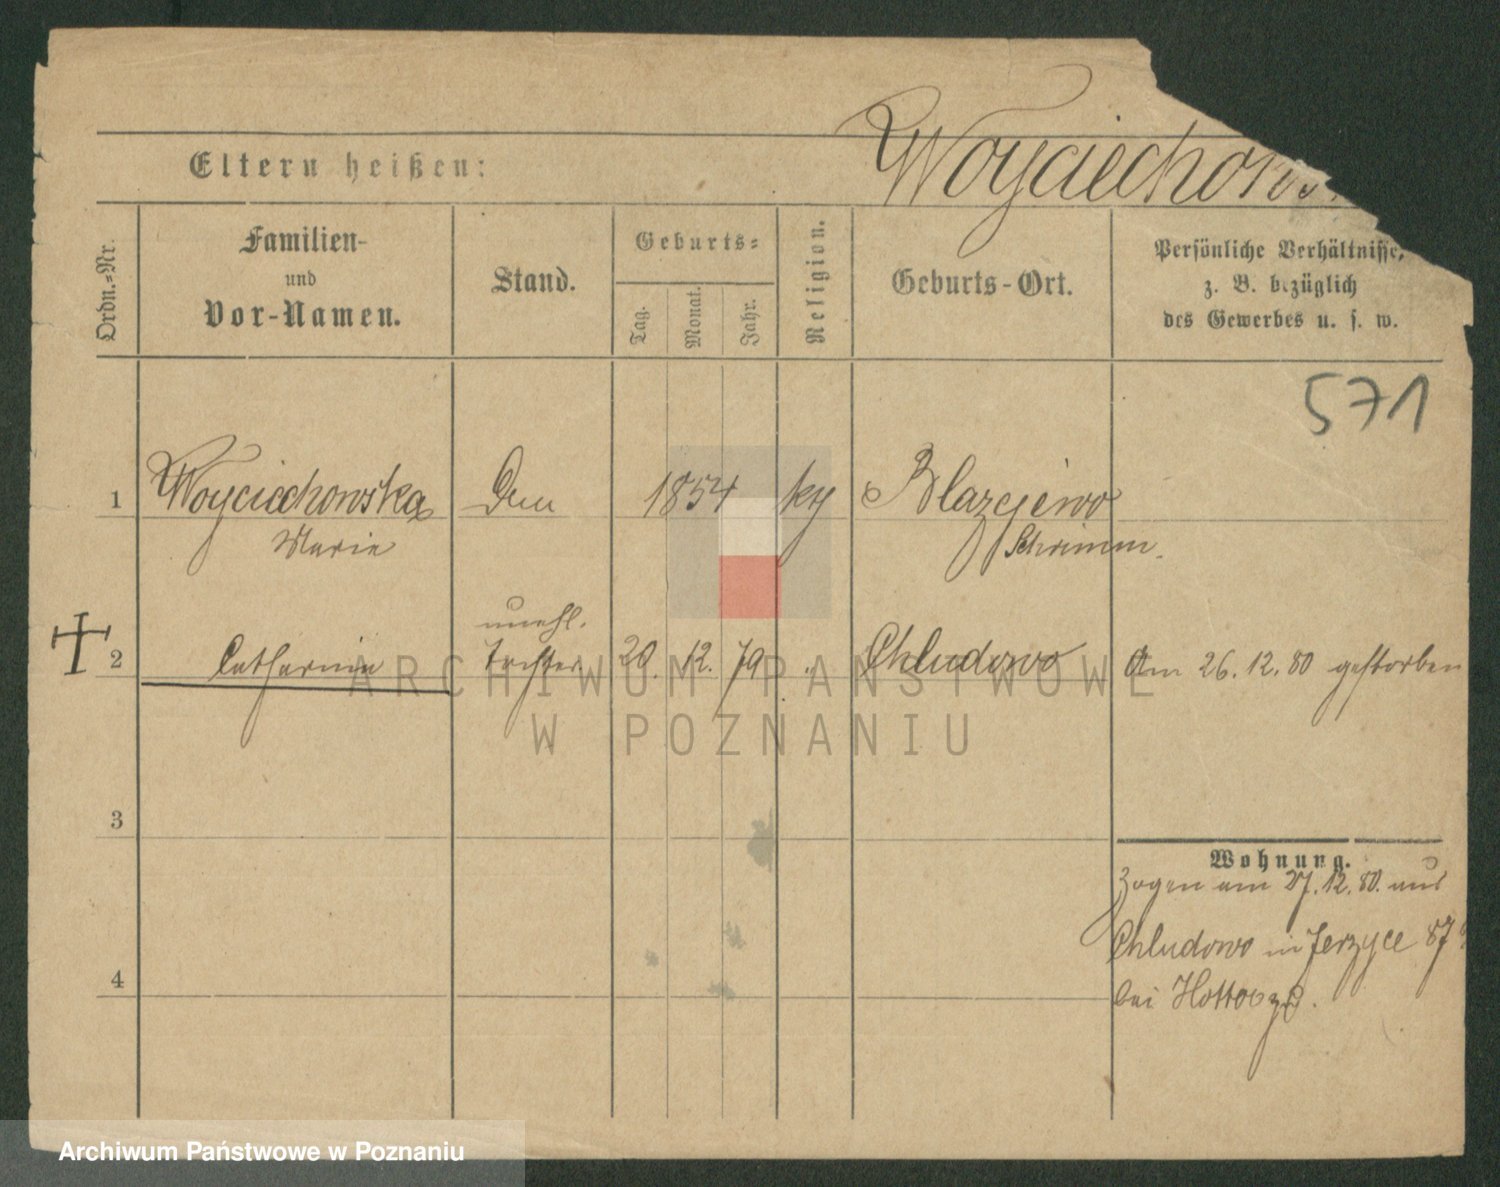 Woyciechows
Eltern heißen:
Ordn.-Nr.
Familien-
und
Vor-Namen.
Stand.
Geburts-
Tag.
Monat.
Jahr.
Religion.
Geburts-Ort.
Persönliche Verhältnisse,
z. B. bezüglich
des Gewerbes u. s. w.
571
1 Woyciechowska 1854 Blazejewo
Marie Schrimm.
unehl.
2 Catharina Tochter 20. 12. 79 " Chludowo Am 26. 12. 80 gestorben
ARCHIWUM PAŃSTWOWE
W POZNANIU
3
Wohnung.
Zogen am 27. 12. 80. aus
Chludowo in Jerzyce 87
4
bei
Archiwum Państwowe w Poznaniu